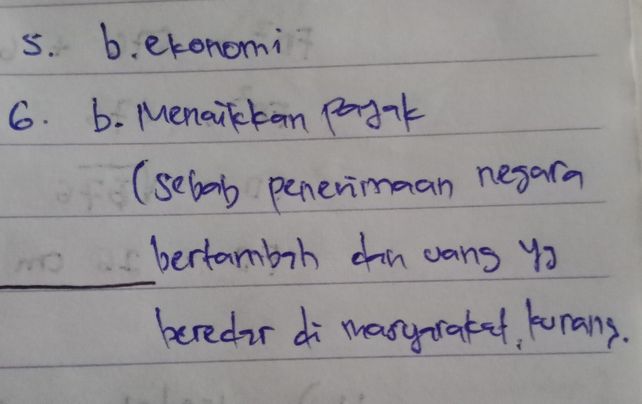 5. b. ekonomi
6. b. Menaikkan Pajak
(sebab penerimaan negara
bertambah dan uang yg
beredar di masyarakat, kurang.